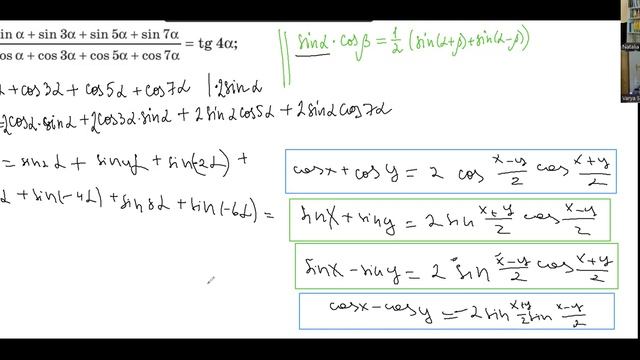 sin α + sin 3α + sin 5α + sin 7α
cos α + cos 3α + cos 5α + cos 7α
= tg 4α;
sinα · cosβ = 1/2 (sin(α+β)+sin(α-β))
α + cos3α + cos5α + cos7α | ·2sinα
=2cosα·sinα + 2cos3α·sinα + 2sinαcos5α + 2sinαcos7α
= sin2α + sin4α + sin(-2α) +
α + sin(-4α) + sin8α + sin(-6α) =
cosx + cosy = 2 cos (x-y)/2 cos (x+y)/2
sinx + siny = 2 sin (x+y)/2 cos (x-y)/2
sinx - siny = 2 sin (x-y)/2 cos (x+y)/2
cosx - cosy = -2 sin (x+y)/2 sin (x-y)/2
Natalia
Varya